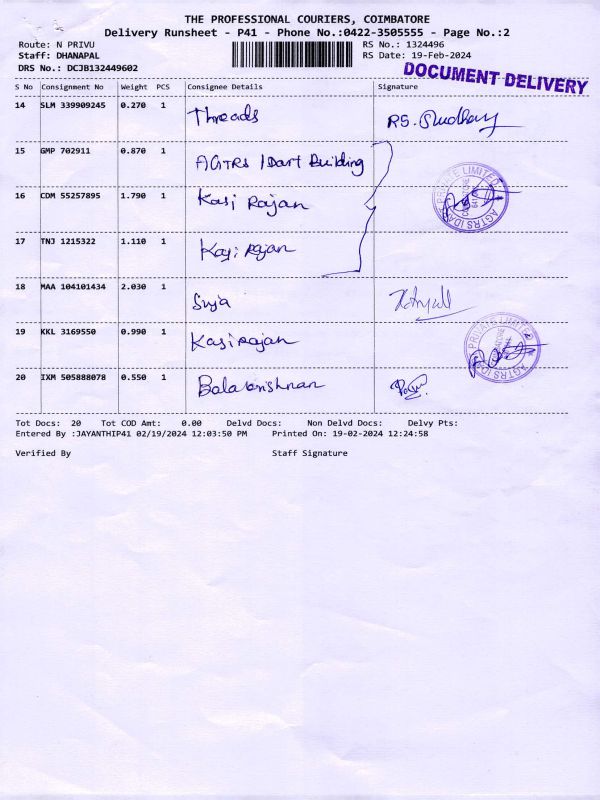 THE PROFESSIONAL COURIERS, COIMBATORE
Delivery Runsheet - P41 - Phone No.:0422-3505555 - Page No.:2
Route: N PRIVU RS No.: 1324496
Staff: DHANAPAL RS Date: 19-Feb-2024
DRS No.: DCJB132449602
DOCUMENT DELIVERY
S No Consignment No Weight PCS Consignee Details Signature
14 SLM 339909245 0.270 1 Threads RS.
15 GMP 702911 0.870 1 AGTRS IDart Building
16 CDM 55257895 1.790 1 Kasi Rajan
PRIVATE LIMITED AGTRS
17 TNJ 1215322 1.110 1 Kasi Rajan
18 MAA 104101434 2.030 1 Suja
19 KKL 3169550 0.990 1 Kasirajan
PRIVATE LIMITED AGTRS
20 IXM 505888078 0.550 1 Balakrishnan
Tot Docs: 20 Tot COD Amt: 0.00 Delvd Docs: Non Delvd Docs: Delvy Pts:
Entered By :JAYANTHIP41 02/19/2024 12:03:50 PM Printed On: 19-02-2024 12:24:58
Verified By Staff Signature